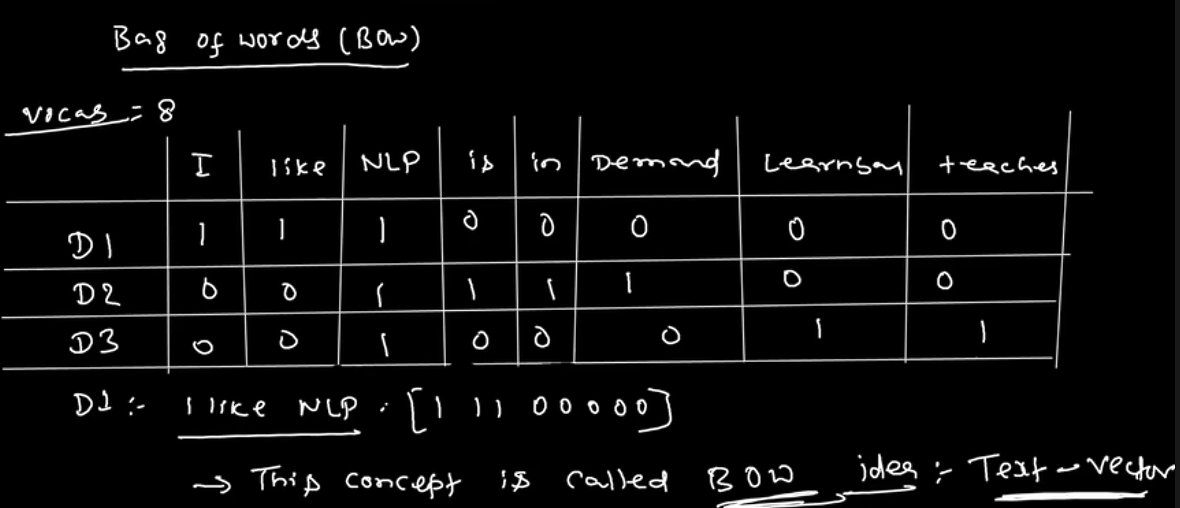 Bag of words (BOW)
vocab = 8
I like NLP is in Demand Learnbay teaches
D1 1 1 1 0 0 0 0 0
D2 0 0 1 1 1 1 0 0
D3 0 0 1 0 0 0 1 1
D1 :- I like NLP . [1 1 1 0 0 0 0 0]
→ This concept is called BOW idea :- Text - vector